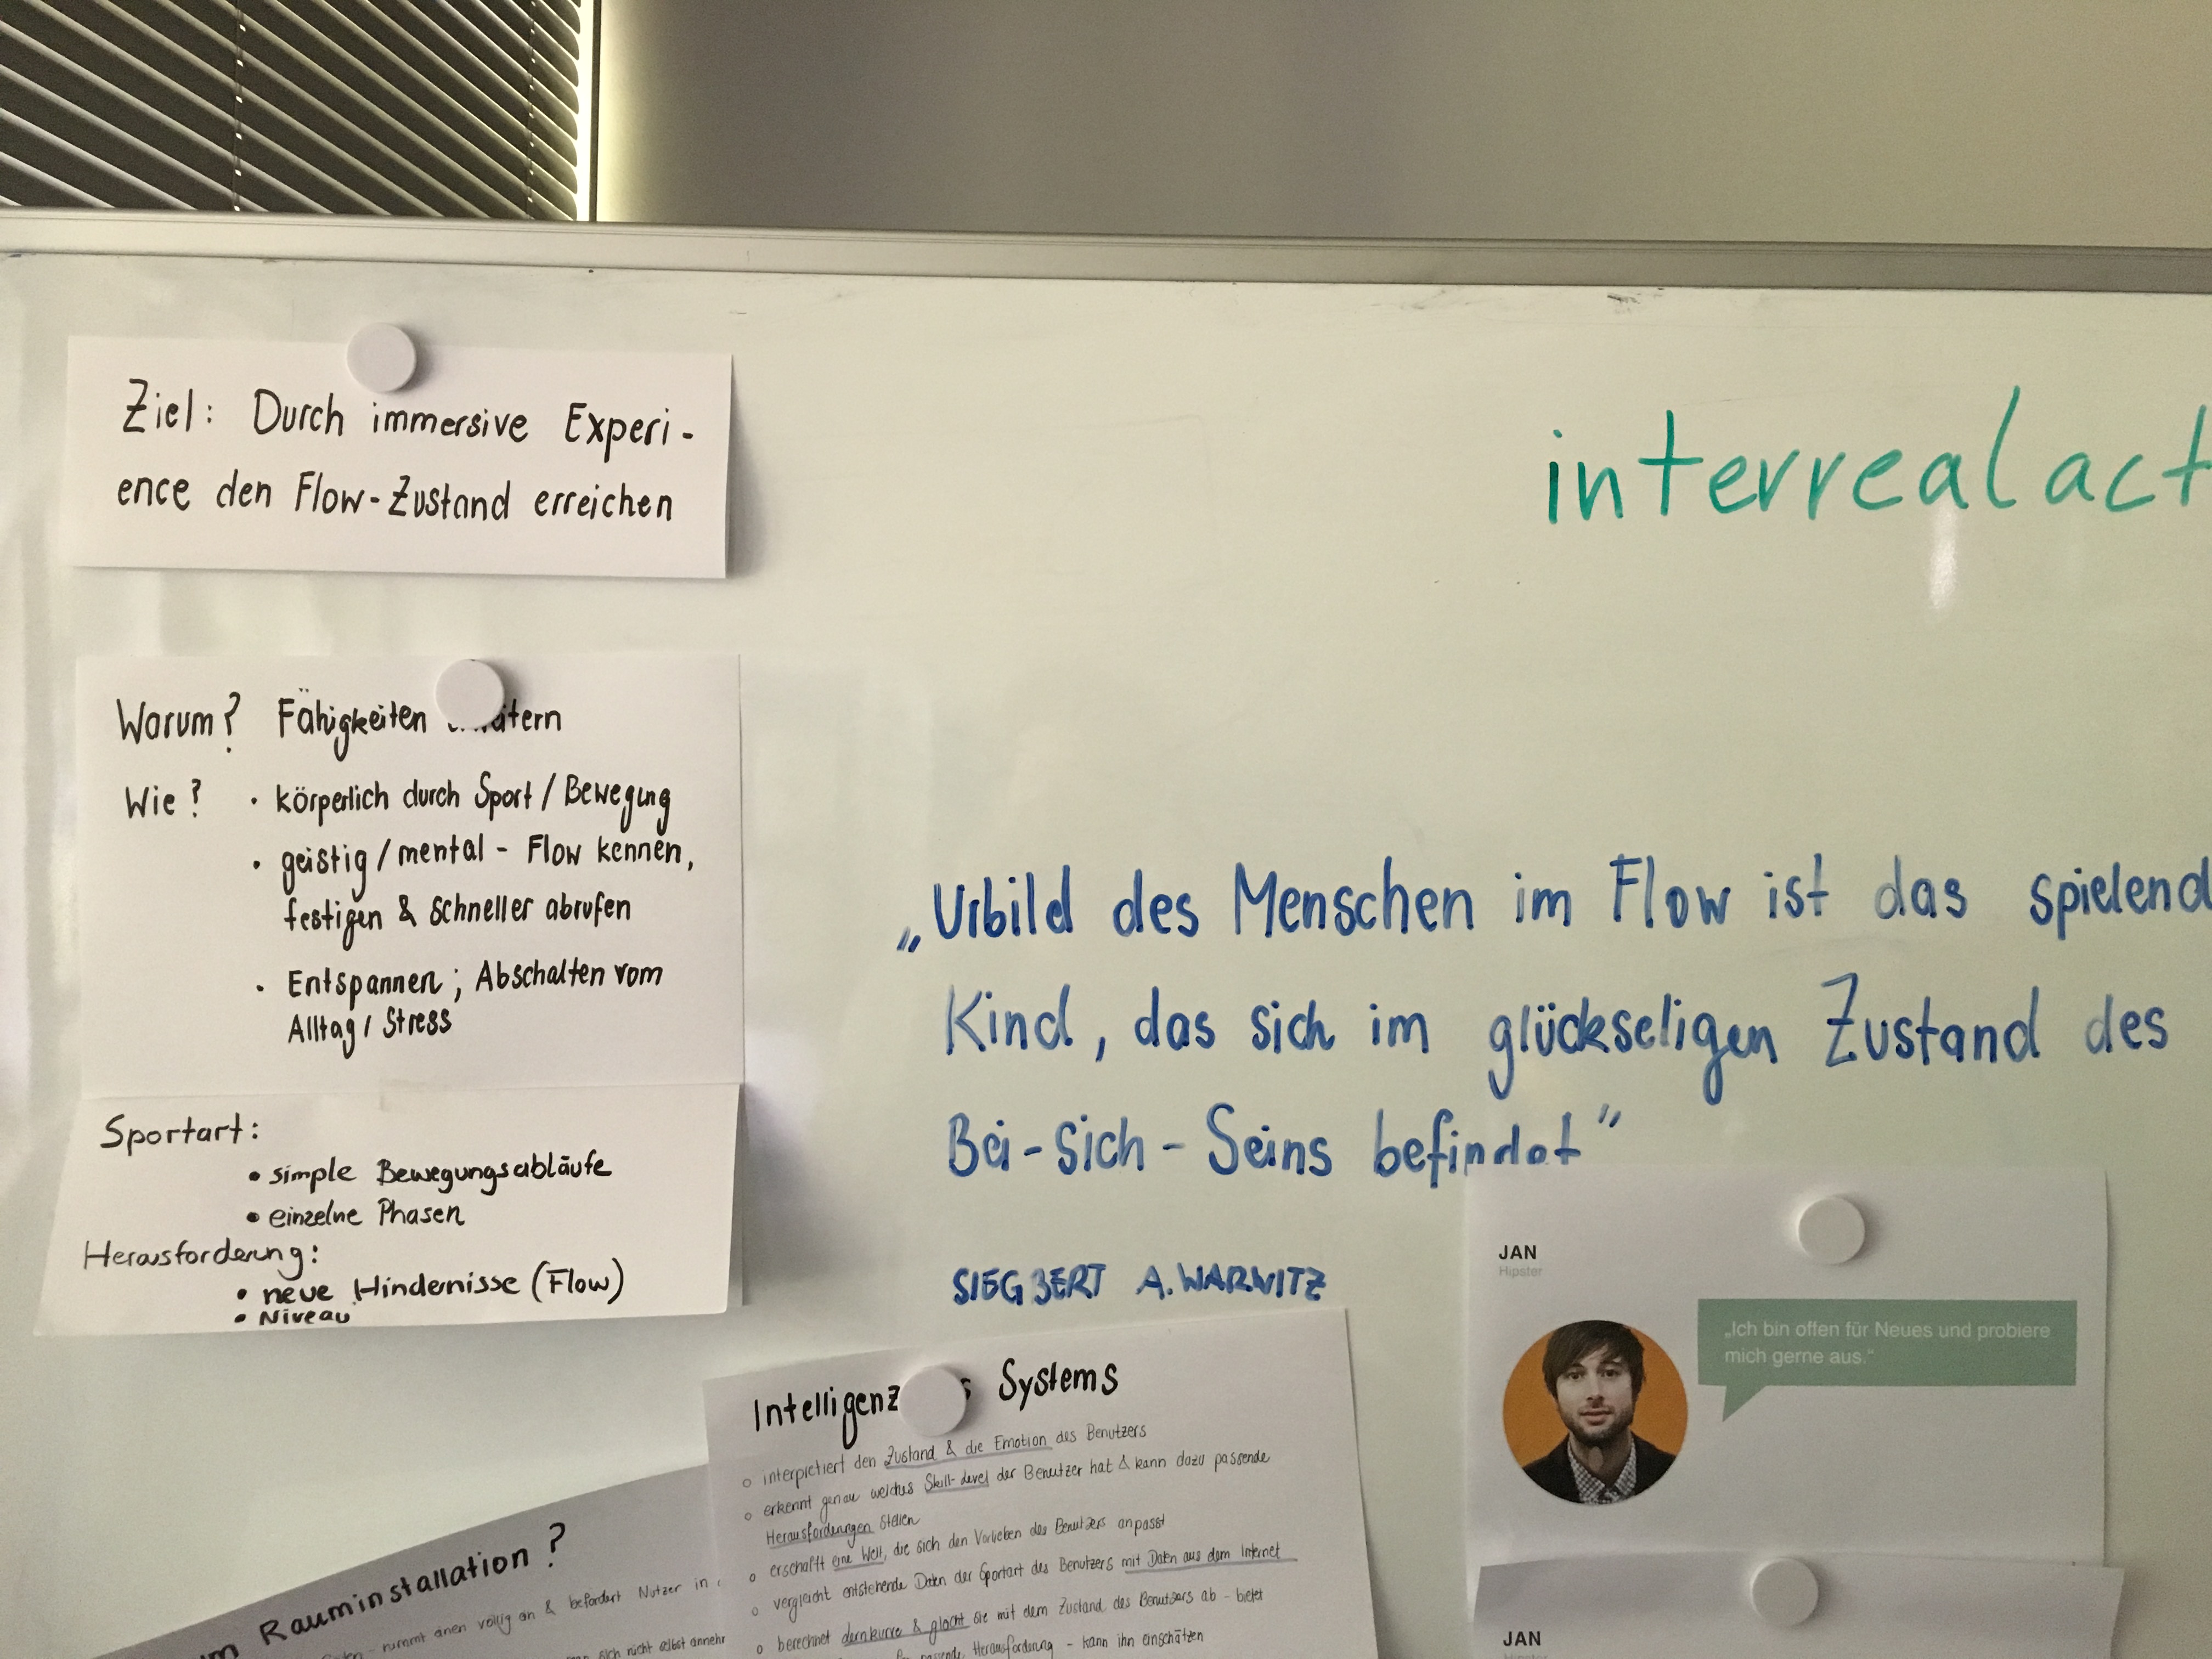 Ziel: Durch immersive Experi-
ence den Flow-Zustand erreichen
Warum? Fähigkeiten
Wie? • körperlich durch Sport / Bewegung
• geistig / mental - Flow kennen,
festigen & schneller abrufen
• Entspannen ; Abschalten vom
Alltag / Stress
Sportart:
• simple Bewegungsabläufe
• einzelne Phasen
Herausforderung:
• neue Hindernisse (Flow)
• Niveau
interrealact
„Urbild des Menschen im Flow ist das spielend
Kind, das sich im glückseligen Zustand des
Bei-sich-Seins befindet"
SIEGBERT A. WARWITZ
JAN
Hipster
„Ich bin offen für Neues und probiere
mich gerne aus."
JAN
Intelligenz Systems
o interpretiert den Zustand & die Emotion des Benutzers
o erkennt genau welches Skill-Level der Benutzer hat & kann dazu passende
Herausforderungen stellen
o erschafft eine Welt, die sich den Vorlieben des Benutzers anpasst
o vergleicht entstehende Daten der Sportart des Benutzers mit Daten aus dem Internet
o berechnet Lernkurve & gleicht sie mit dem Zustand des Benutzers ab - bietet
Herausforderung - kann ihn einschätzen
Rauminstallation ?
nimmt einen völlig an & befördert Nutzer in
sich nicht selbst